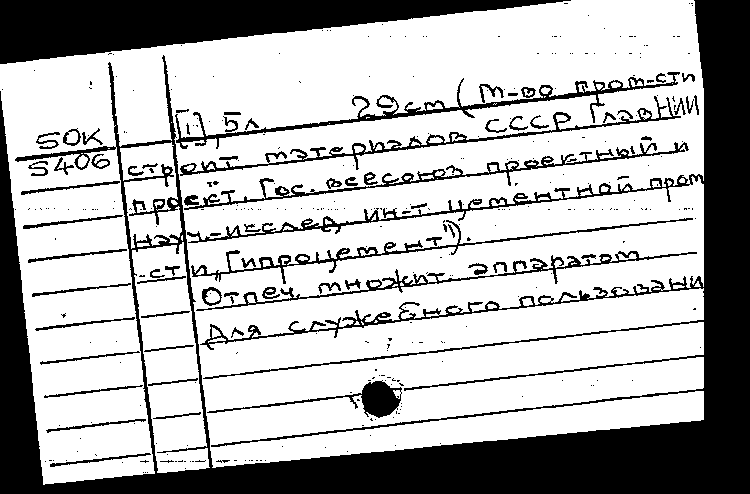 [1], 5л 29см (М-во пром-сти
50К
5406
строит материалов СССР ГлавНИИ
проект. Гос. всесоюз проектный и
науч.-исслед. ин-т цементной пром
-сти „Гипроцемент").
Отпеч. множит. аппаратом
Для служебного пользовани